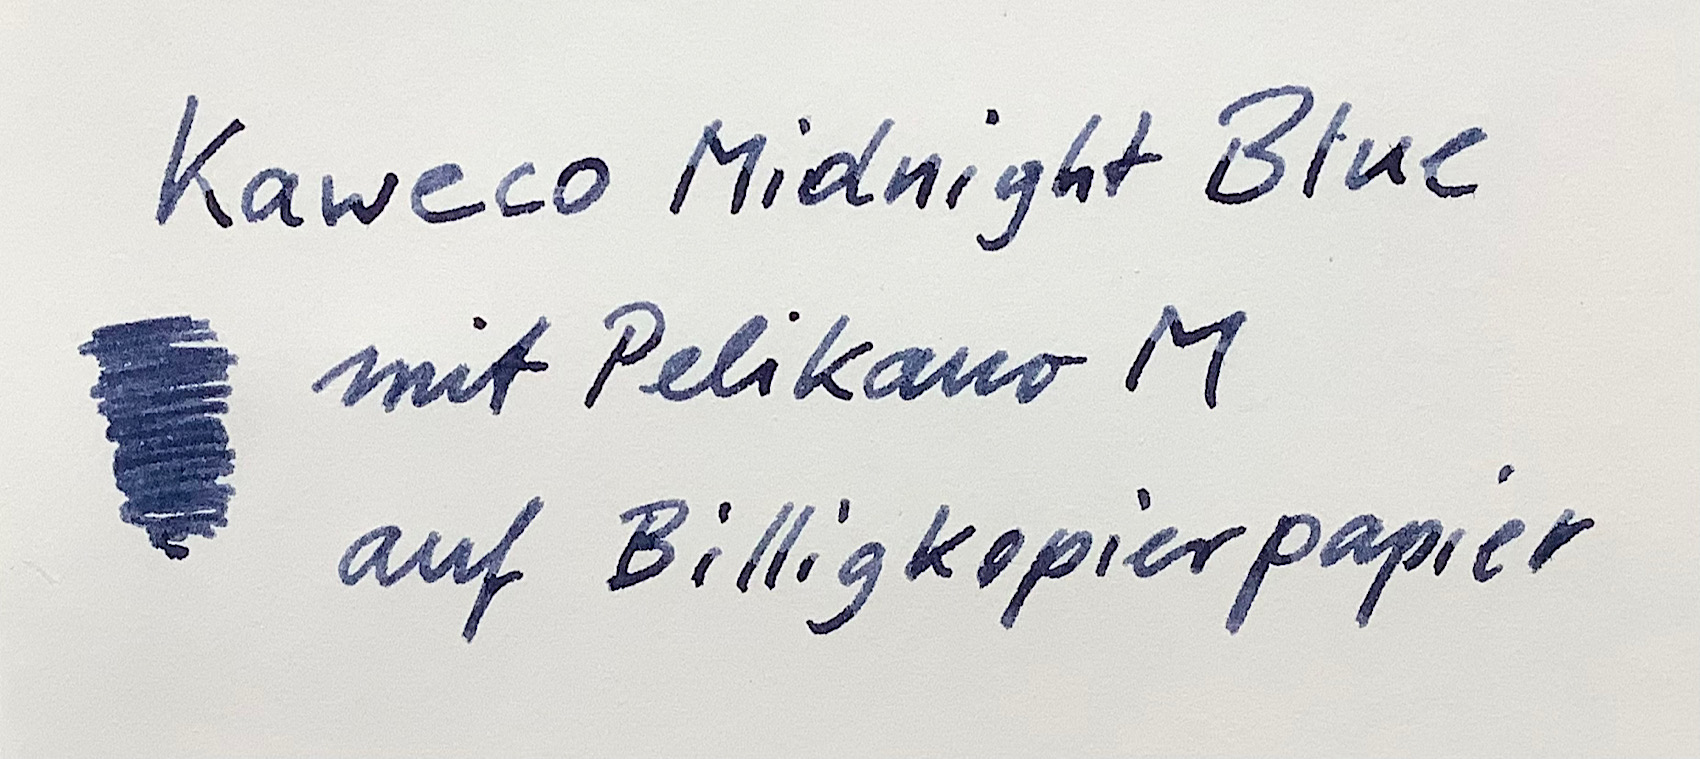 Kaweco Midnight Blue
mit Pelikano M
auf Billigkopierpapier